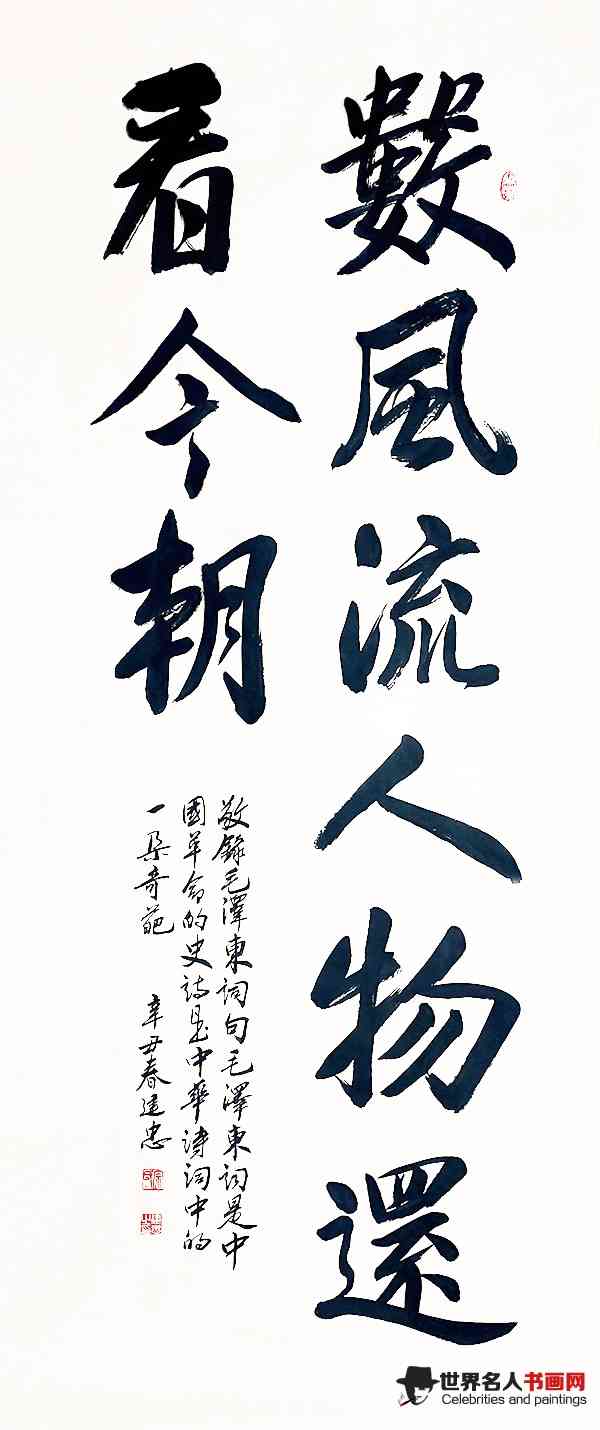 數風流人物還
看今朝
敬錄毛澤東詞句毛澤東詞是中
國革命的史詩是中華詩詞中的
一朵奇葩 辛丑春建忠
世界名人书画网
Celebrities and paintings